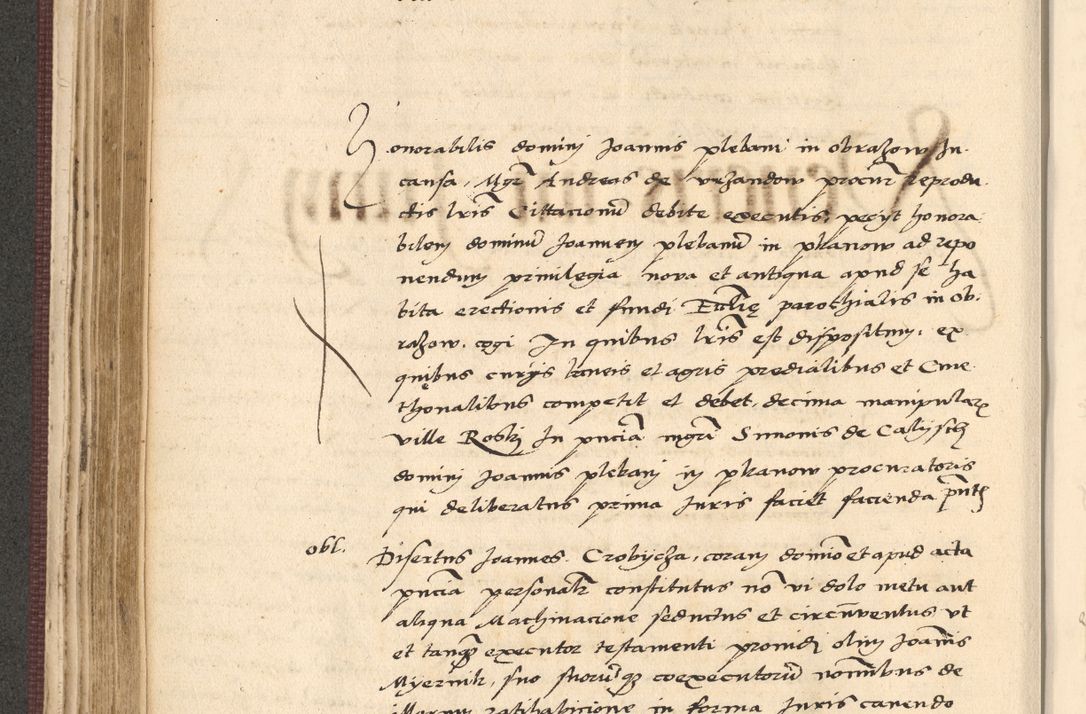 Honorabilis domini Joannis plebani in obrazow In
causa, Mgr Andreas de vrzandow procur reprodu
ctis lris Cittacionu debite executis, pecyt honora
bilem dominu Joannem plebanu in pkanow ad repo
nendum privilegia nova et antiqua apud se ha
bita erectionis et fundi Ecclie parochialis in ob
razow. cogi In quibus lris est dispositum, ex
quibus curijs laneis et agris predialibus et Cme
thonalibus competit et debet, decima manipular
ville Roski In pncia mgri Simonis de Calijsch
domini Joannis plebani in pkanow procuratoris
qui deliberatus prima Juris faciet facienda pntes
obl. Disertus Joannes Crobijcza, coram domino et apud acta
pncia personalr constitutus no vi dolo metu aut
aliqua Machinacione seductus et circuventus vt
et tanq executor testamenti providi olim Joannis
Myernik, suo suoruq coexecutoru nominibus de
ratihabicione in forma Juris cavendo